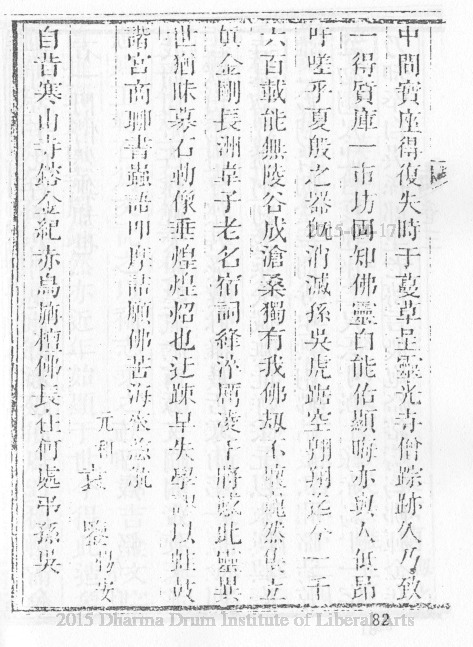 中間寶座得復失時于蔓草呈靈光寺僧踪跡久乃致
一得質庫一市坊固知佛靈自能佑顯晦亦與人低昂
吁嗟乎夏殷之器既消滅孫吳虎踞空翱翔迄今一千
六百載能無陵谷成滄桑獨有我佛刼不壞巍然隻立
眞金剛長洲韋子老名宿詞鋒淬厲凌干將感此靈異
世猶昧摹石勒像垂煌煌炤也迂踈早失學謬以蛙鼓
諧宮商聊書蟲語叩摩詰願佛苦海來慈航
元和 袁 鑒
自昔寒山寺鎔金紀赤烏旃檀佛長在何處弔孫吳
82
2015 Dharma Drum Institute of Liberal Arts